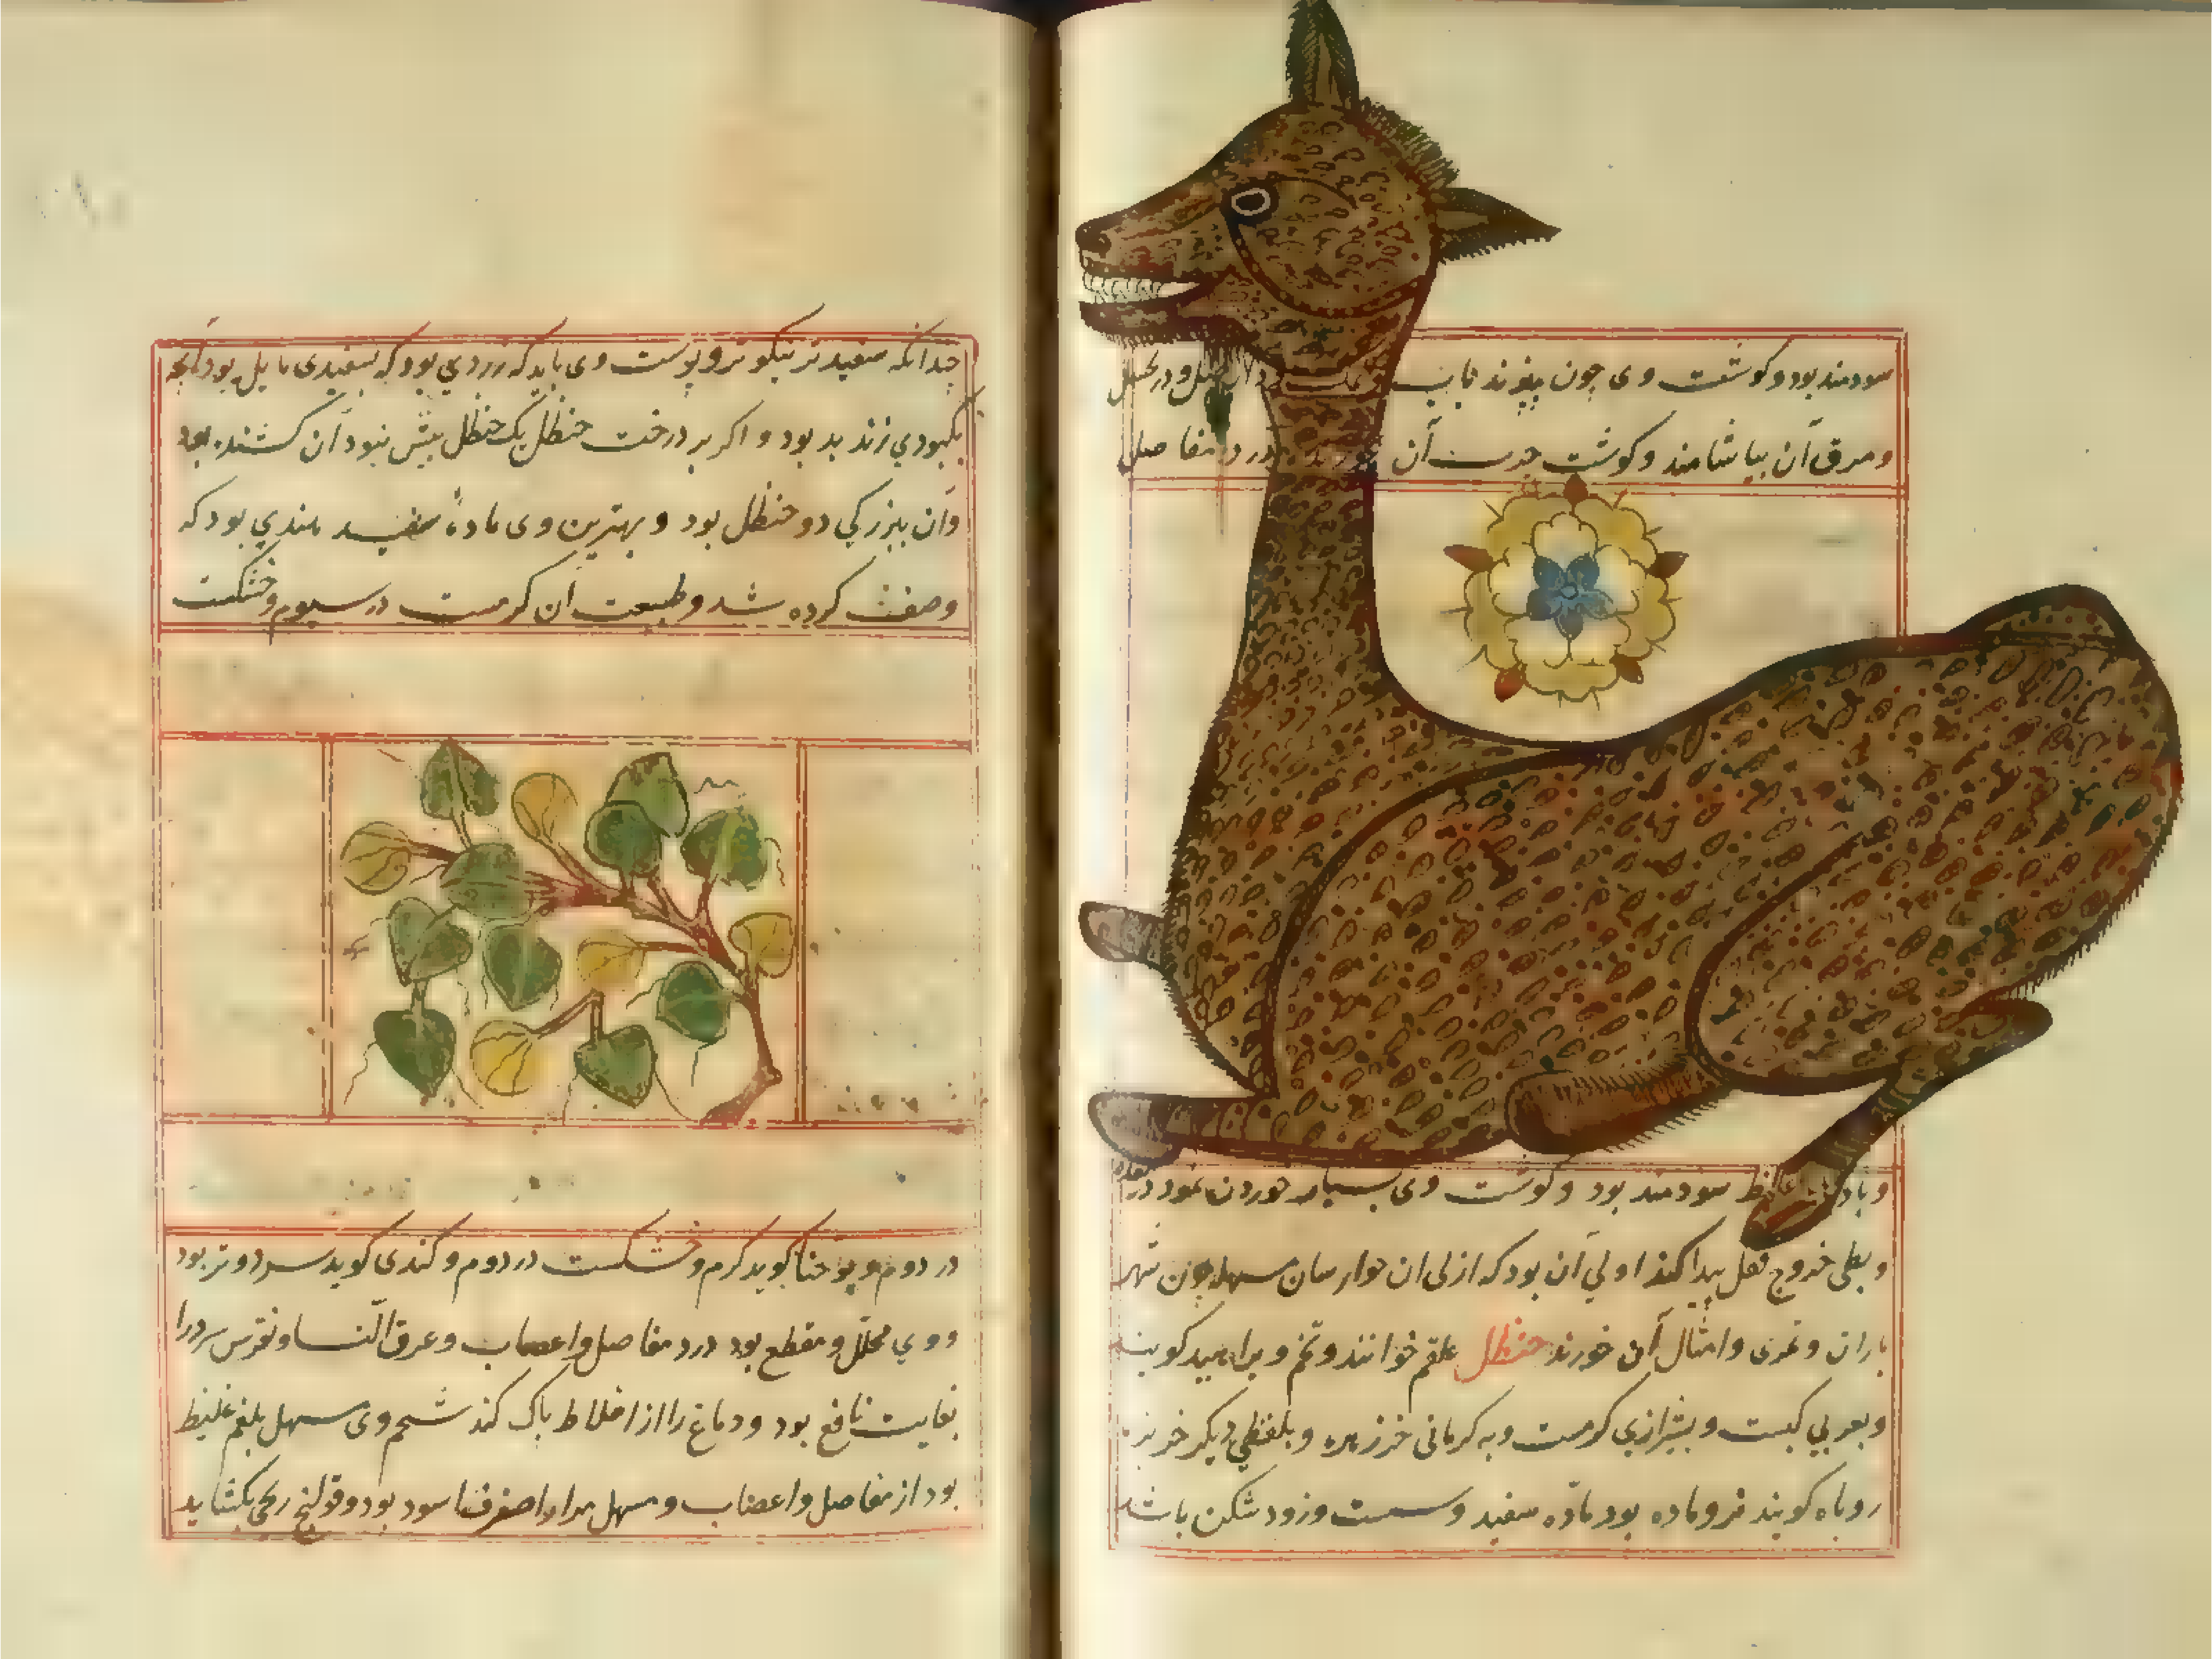 سودمند بود و کوشت وی چون بپزند باب و در
ومرق آن بیاشامند وکوشت آن درد مفاصل
سودمند بود و کوشت وی بسیار خوردن نمود در معده
خروج ثقل پیدا کند اولی آن بود که ازلی ان جوارسان مسهل چون شهر
باران و تمری وامثال آن خورند حنظل علقم خوانند و کویند
وبعربی کبست و بشیرازی کرمست وبه کرمانی خرزهره و بلفظی دیکر خربزه
روباه کویند نر وماده بود مادّه سفید وسست و زود شکن باشد
چدانکه سفیدتر نیکوتر وپوست وی باید که زردی بود که بسفیدی مایل بود
بکبودی زند بد بود و اکر بر درخت حنظل یک حنظل بیش نبود آن کشنده بود
وآن ببزرکی دو حنظل بود و بهترین وی مادهٔ سفید هندی بود که
وصفت کرده شد و طبیعت آن کرمست در سیوم وخشکست
در دوم و یوحنا کوید کرم وخشکست در دوم و کندی کوید سرد و تر بود
و وی محلّل و مقطع بود درد مفاصل واعصاب وعرق النسا ونقرس سرد را
بغایت نافع بود و دماغ را از اخلاط پاک کند شحم وی مسهل بلغم غلیظ
بود از مفاصل واعصاب و مسهل بود و قولنج ریحی بکشاید